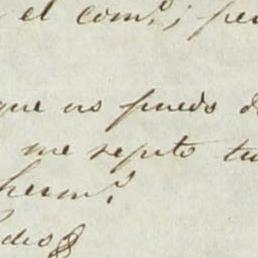 el com.º; per
que no puedo d
me repito tu
herm.º